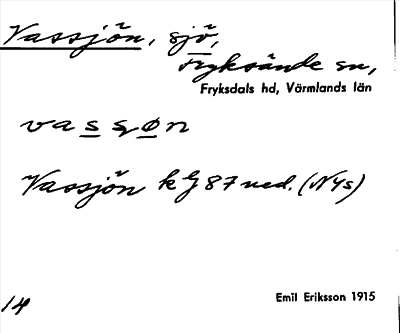 Vassjön, sjö,
Fryksände sn,
Fryksdals hd, Värmlands län
vassøn
Vassjön kG 87 ned. (N4s)
Emil Eriksson 1915
14